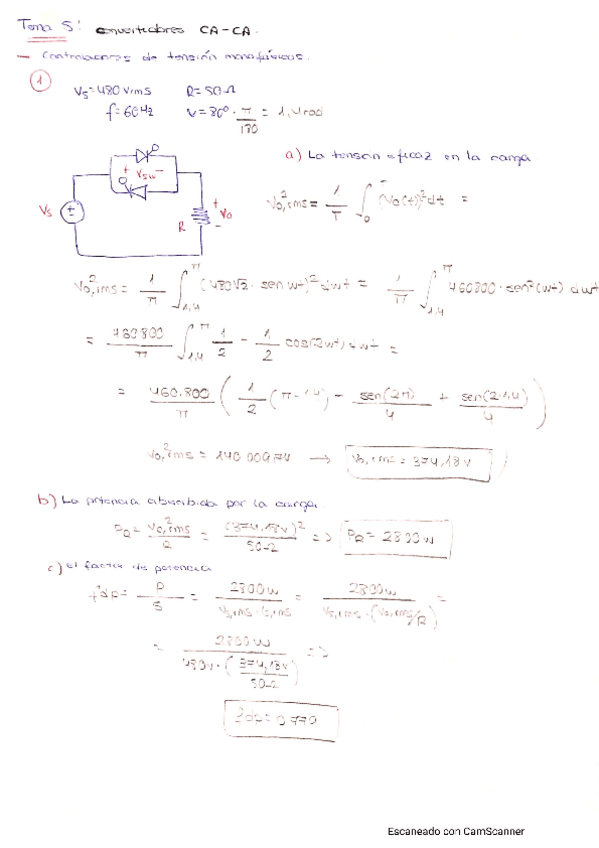 Tema 5: convertidores CA-CA.
- Controladores de tensión monofásicos.
1
Vs=480 Vrms R=50Ω
f=60Hz α=80º · π/180 = 1,4 rad
a) La tensión eficaz en la carga
+ Vsw -
Vs
R
+ Vo -
Vo,rms² = 1/T ∫₀ᵀ (Vo(t))² dt =
Vo,rms² = 1/π ∫₁,₄^π (480√2 · sen wt)² dwt = 1/π ∫₁,₄^π 460800 · sen²(wt) dwt
= 460.800/π ∫₁,₄^π 1/2 - 1/2 cos(2wt) dwt =
= 460.800/π ( 1/2 (π-1,4) - sen(2π)/4 + sen(2·1,4)/4 )
Vo,rms² = 140 009,74 → Vo,rms = 374,18 V
b) La potencia absorbida por la carga.
PR = Vo,rms²/R = (374,18V)²/50Ω => PR = 2800 w
c) el factor de potencia
fdp = P/S = 2800w/Vs,rms · Is,rms = 2800w/Vs,rms · (Vo,rms/R) =
= 2800w/480V · (374,18V/50Ω) =>
fdp = 0,779
Escaneado con CamScanner